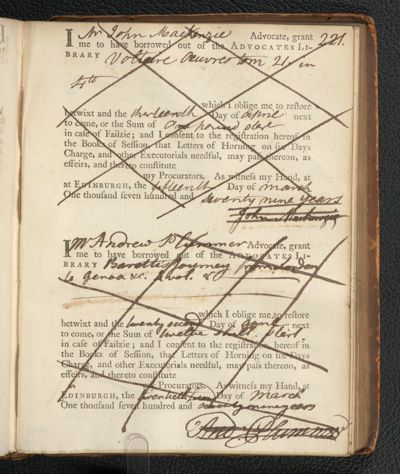 I Mr John Mackenzie Advocate, grant 221.
me to have borrowed out of the ADVOCATES LI-
BRARY Voltaire oeuvres tom 21 in
4to
which I oblige me to restore
betwixt and the thirteenth Day of april next
to come, or the Sum of One pound ster
in case of Failzie; and I consent to the registration hereof in
the Books of Session, that Letters of Horning on six Days
Charge, and other Executorials needful, may pass thereon, as
effeirs, and thereto constitute
my Procurators. As witness my Hand, at
EDINBURGH, the fifteenth Day of march
One thousand seven hundred and seventy nine years
John Mackenzie
I Mr Andrew Plummer Advocate, grant
me to have borrowed out of the ADVOCATES LI-
BRARY Barettis Journey from London
to Genoa &c.
which I oblige me to restore
betwixt and the twenty second Day of next
to come, or the Sum of twelve shill. ster.
in case of Failzie; and I consent to the registration hereof in
the Books of Session, that Letters of Horning on six Days
Charge, and other Executorials needful, may pass thereon, as
effeirs, and thereto constitute
my Procurators. As witness my Hand, at
EDINBURGH, the Day of March
One thousand seven hundred and seventy nine years
And Plummer